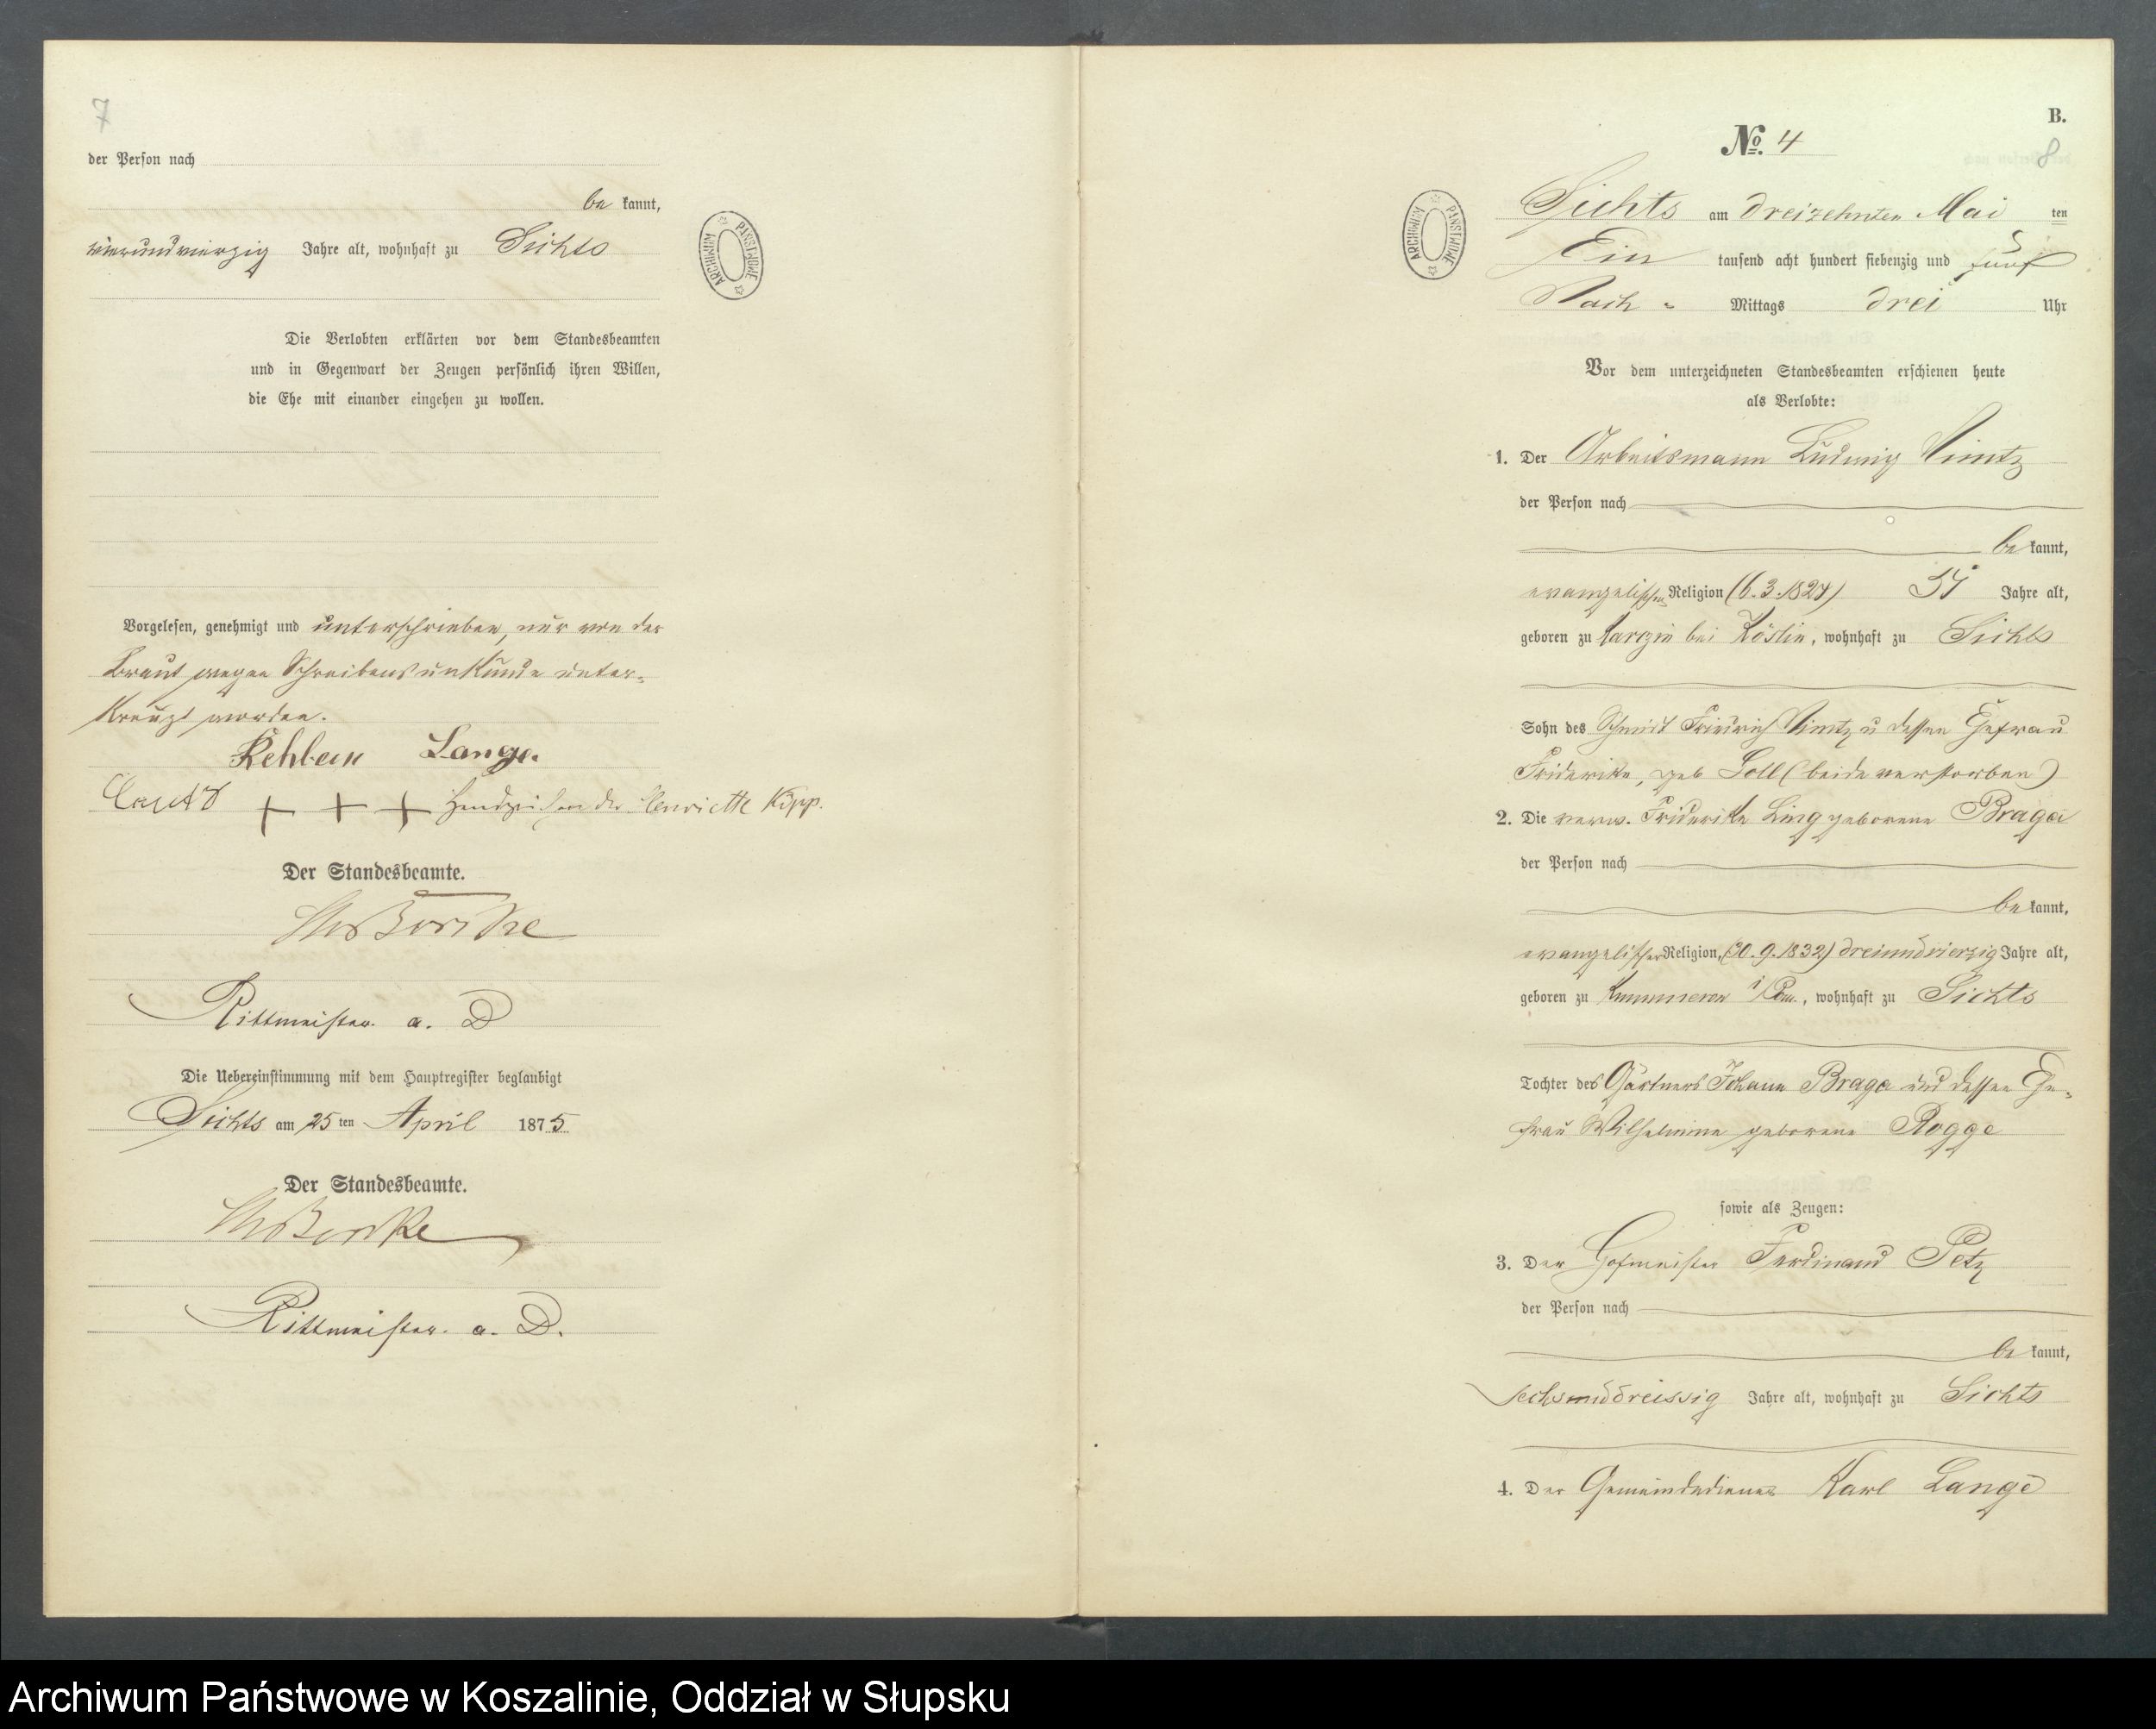 7
der Person nach
be kannt,
vierundvierzig Jahre alt, wohnhaft zu Sichts
ARCHIWUM PAŃSTWOWE
Die Verlobten erklärten vor dem Standesbeamten
und in Gegenwart der Zeugen persönlich ihren Willen,
die Ehe mit einander eingehen zu wollen.
Vorgelesen, genehmigt und unterschrieben, nur von der
Braut wegen Schreibensunkunde unter-
kreuzt worden.
Rehbein Lange
+ + + Handzeichen der Henriette Kipp.
Der Standesbeamte.
Rittmeister a. D
Die Uebereinstimmung mit dem Hauptregister beglaubigt
Sichts am 25 ten April 1875
Der Standesbeamte.
Rittmeister a. D.
B.
No. 4
8
ARCHIWUM PAŃSTWOWE
Sichts am dreizehnten Mai ten
Ein tausend acht hundert siebenzig und fünf
Nach - Mittags drei Uhr
Vor dem unterzeichneten Standesbeamten erschienen heute
als Verlobte:
1. Der Arbeitsmann Ludwig Nimtz
der Person nach
be kannt,
evangelischer Religion (6.3.1824) 51 Jahre alt,
geboren zu bei Köslin, wohnhaft zu Sichts
Sohn des Schmidt Friedrich Nimtz u dessen Ehefrau
Friderike, geb Goll (beide verstorben)
2. Die verw. Friderike Ling geborene Braga
der Person nach
be kannt,
evangelischer Religion, (30.9.1832) dreiundvierzig Jahre alt,
geboren zu Kummerow i/Pom., wohnhaft zu Sichts
Tochter des Gärtners Johann Braga und dessen Ehe-
frau Wilhelmine geborene Rogge
sowie als Zeugen:
3. Der Hofmeister Ferdinand Petz
der Person nach
be kannt,
sechsunddreissig Jahre alt, wohnhaft zu Sichts
4. Der Gemeindediener Karl Lange
Archiwum Państwowe w Koszalinie, Oddział w Słupsku